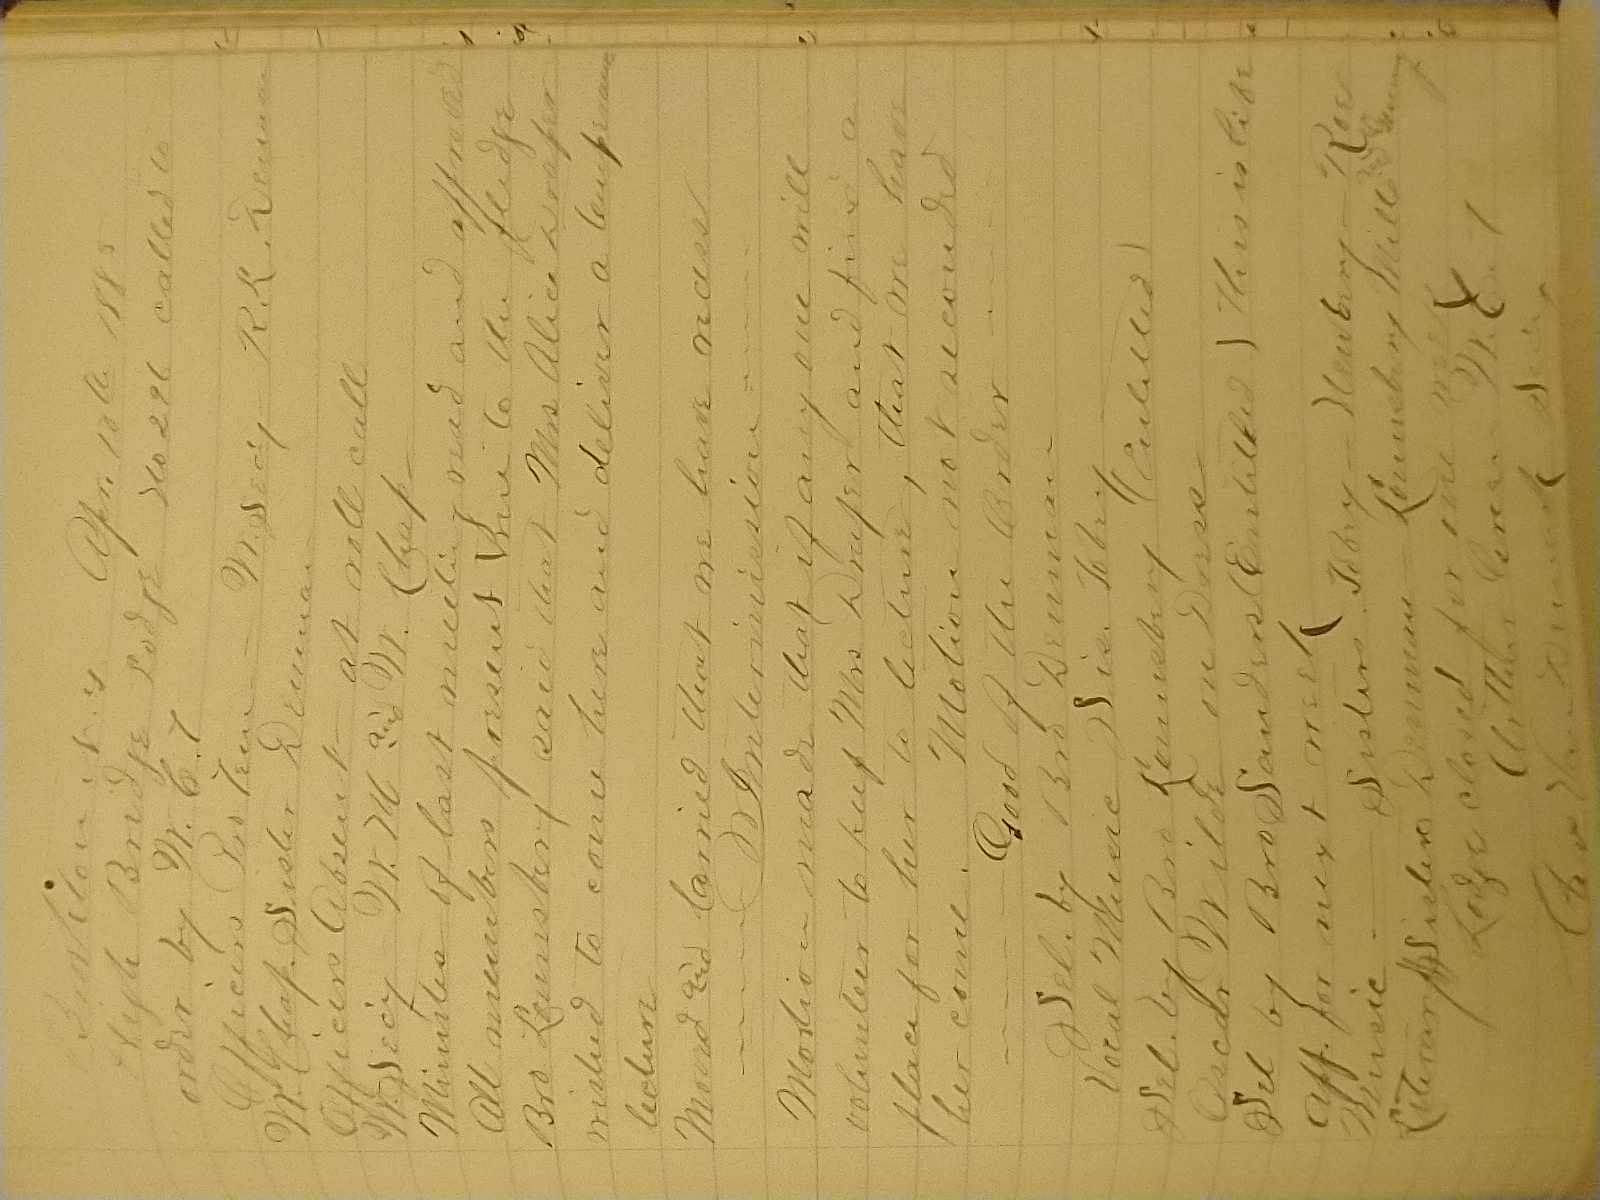 N.Y. Apr. 1885
High Bridge Lodge No 296 called to
order by W. C. T
Officers Pro Tem — W. Secy — R.R. Denman
W. Chap. Sister Denman
Officers Absent — at roll call
W. Secy — W. M and W. Chap —
Minutes of last meeting read and approved
All members present true to the pledge
Bro Lounsbery said that Mrs Alice Draper
wished to come here and deliver a temperance
lecture
Moved and Carried that we have recess
Intermission
Motion made that if any one will
volunteer to keep Mrs Draper and find a
place for her to lecture, that we have
her come. Motion not seconded
Good of the Order
Sel. by Bro Denman
Vocal Music Sis. Tobey
Sel. by Bro Lounsbery (Entitled)
Oscar Wilde on Dress
Sel by Bro Sanders (Entitled) This is life
App. for next week
Music — Sisters. Tobey — Newbery — Roe
Literary Sisters Denman — Lounsbery Mills and
Lodge closed for one week
Arthur Green W. C. T
Chas Van Demark Secy